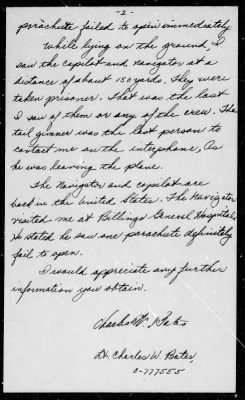 -2-
parachute failed to open immediately
While lying on the ground, I
saw the copilot and navigator at a
distance of about 150 yards. They were
taken prisoner. That was the last
I saw of them or any of the crew. The
tail gunner was the last person to
contact me on the interphone, as
he was leaving the plane.
The Navigator and copilot are
back in the United States. The Navigator
visited me at Billings General Hospital.
He stated he saw one parachute definitely
fail to open.
I would appreciate any further
information you obtain.
Charles W. Bates
Lt. Charles W. Bates,
O-777555